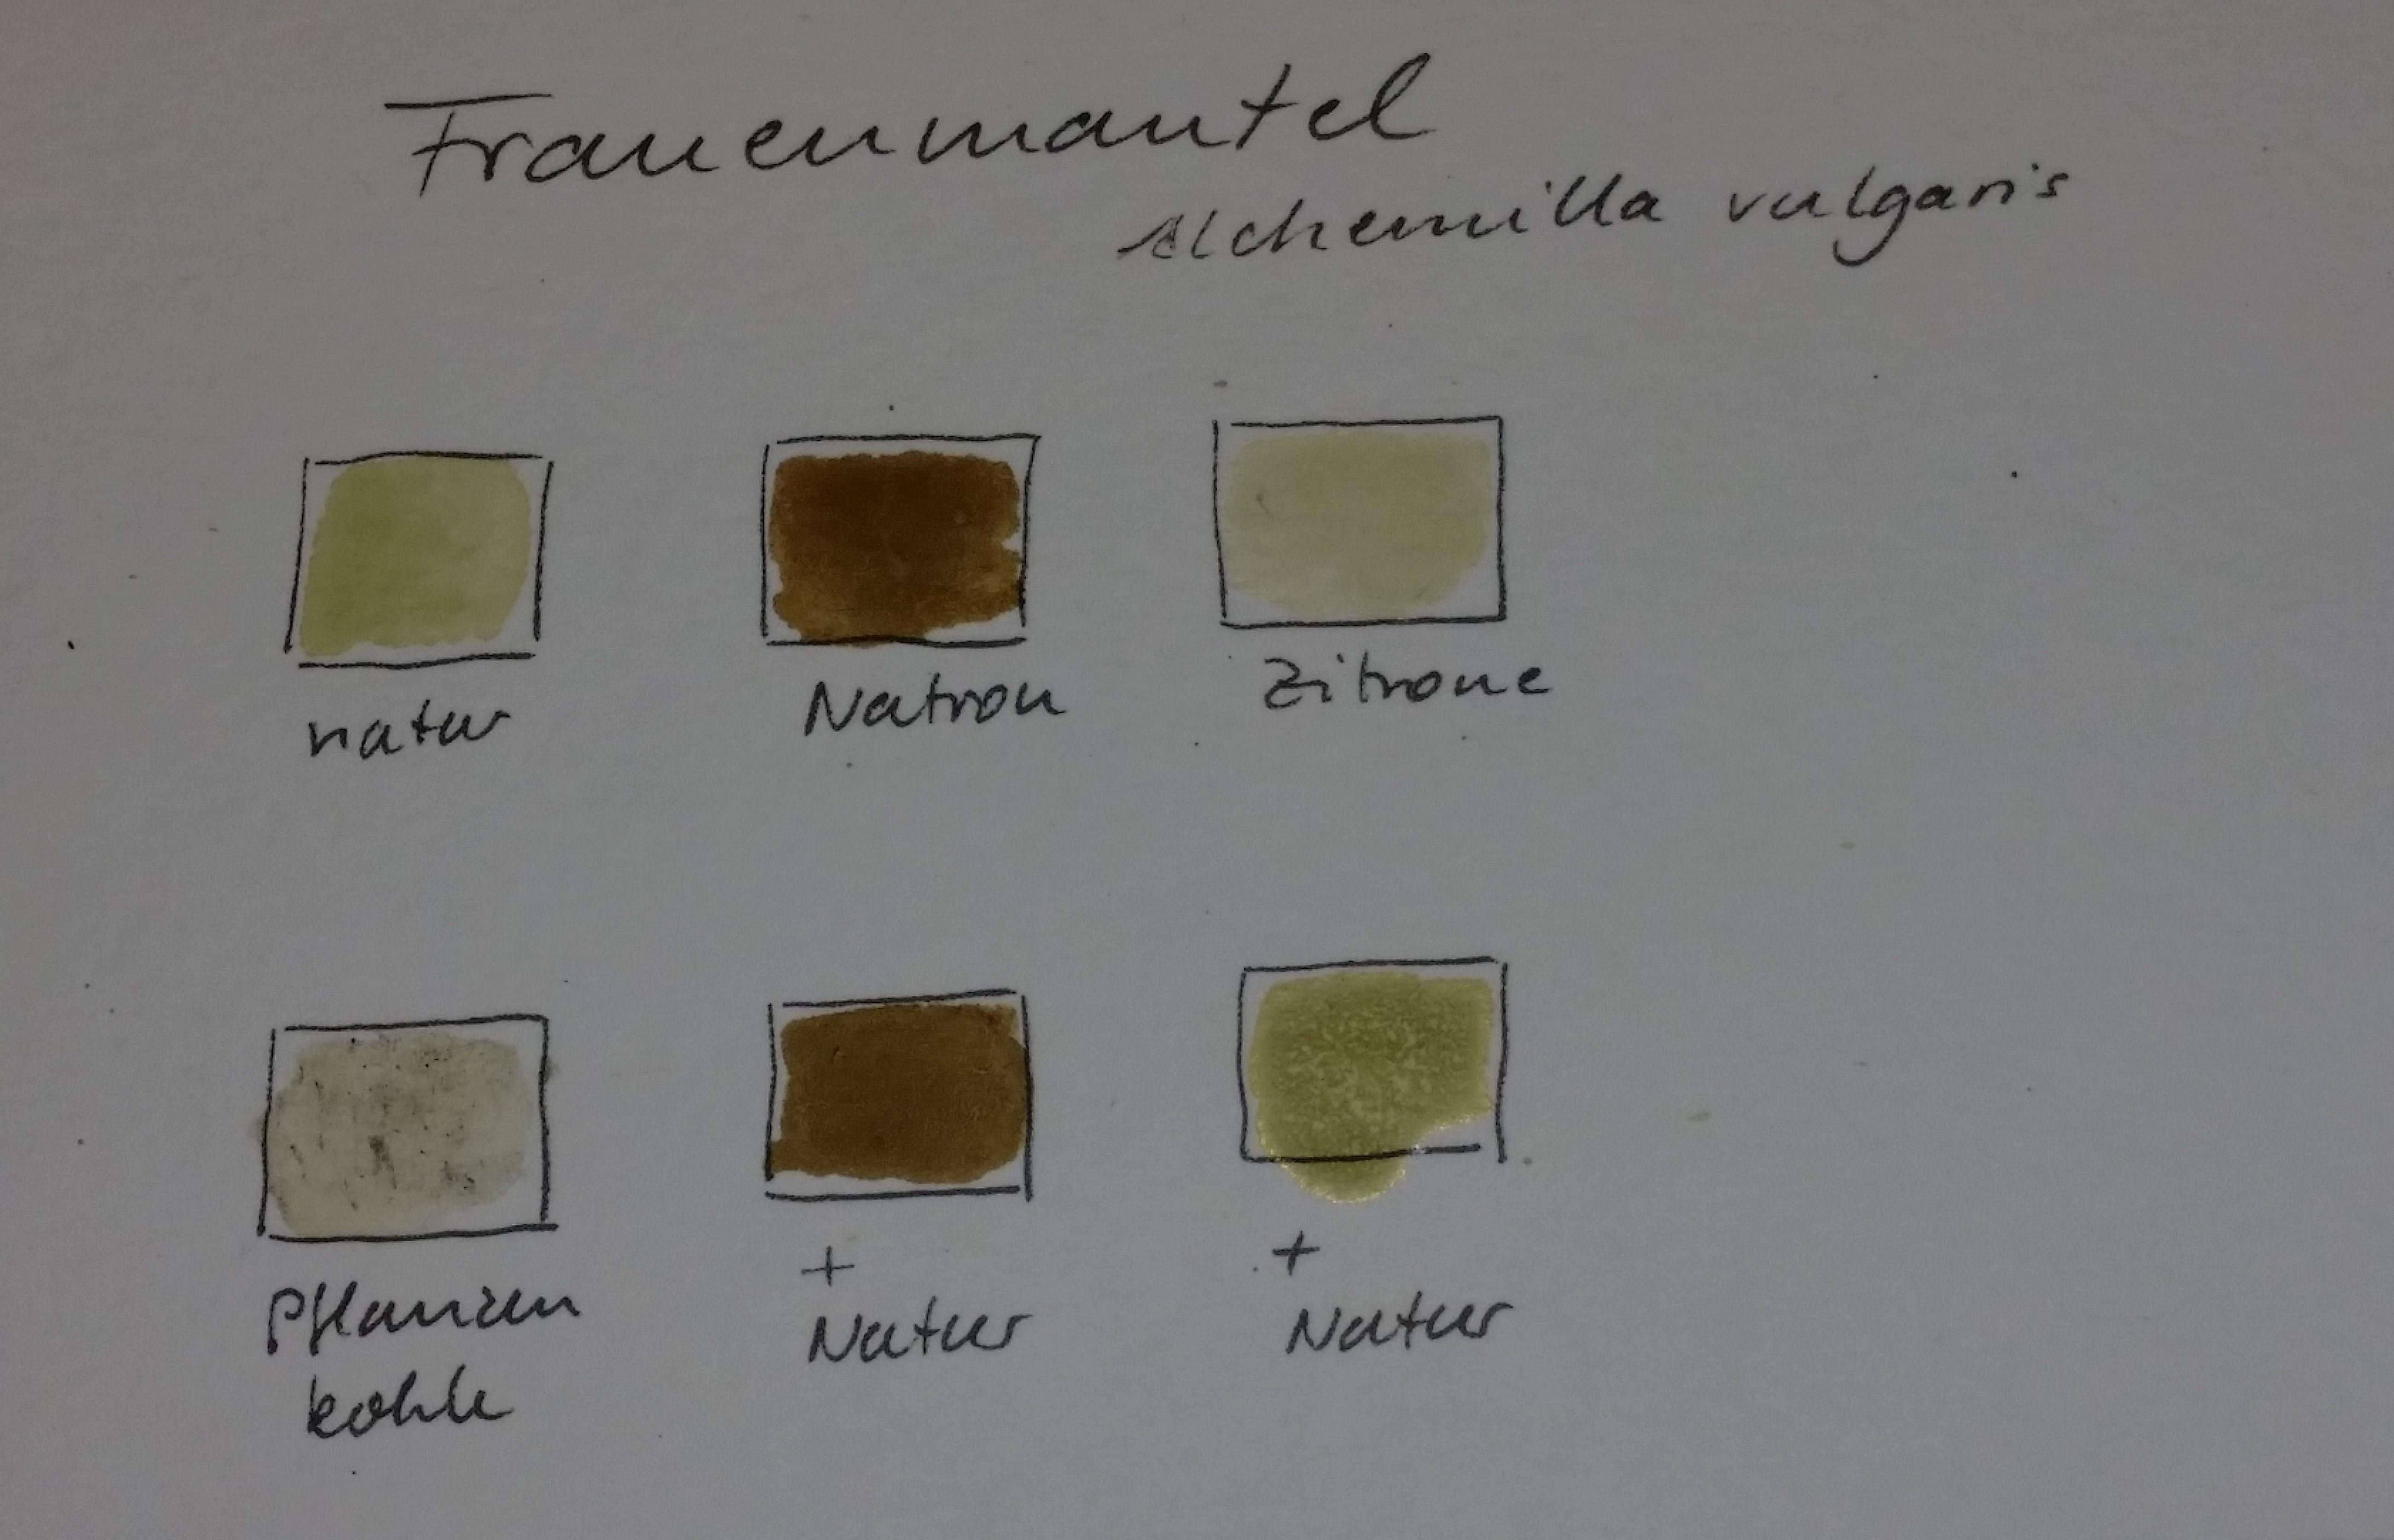 Frauenmantel
Alchemilla vulgaris
natur
Natron
Zitrone
Pflanzen
kohle
+
Natur
+
Natur